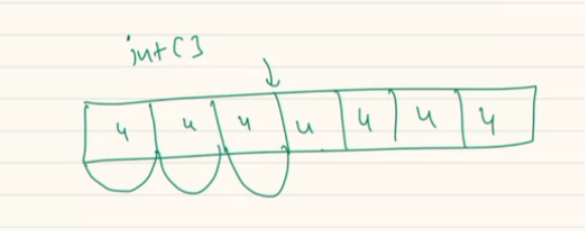 int[]
4 4 4 4 4 4 4